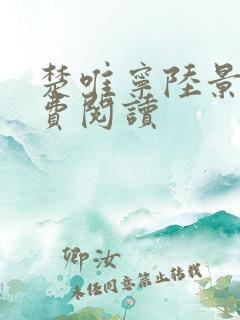 楚唯寧陸景
費閱讀
卿汝
未经同意禁止转载